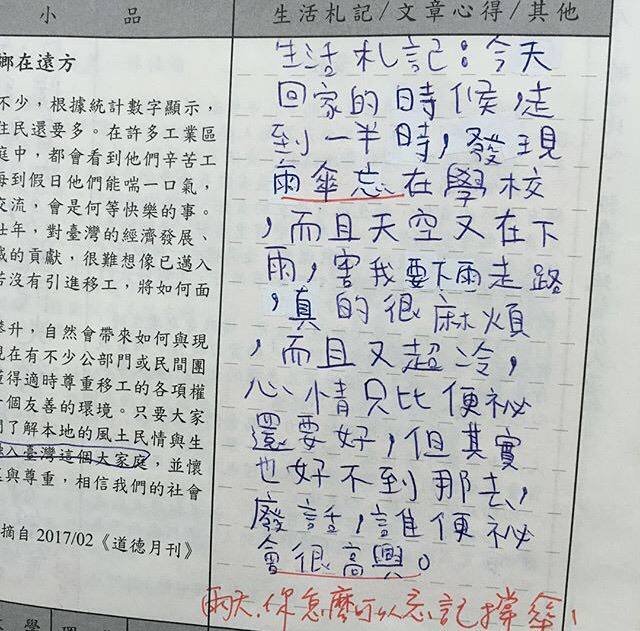 小品
生活札記/文章心得/其他
鄉在遠方
不少，根據統計數字顯示，
住民還要多。在許多工業區
庭中，都會看到他們辛苦工
每到假日他們能喘一口氣，
交流，會是何等快樂的事。
壯年，對臺灣的經濟發展、
的貢獻，很難想像已邁入
若沒有引進移工，將如何面
升，自然會帶來如何與現
現在有不少公部門或民間團
懂得適時尊重移工的各項權
個友善的環境。只要大家
們了解本地的風土民情與生
入臺灣這個大家庭，並懷
與尊重，相信我們的社會
摘自 2017/02《道德月刊》
生活札記：今天
回家的時候，走
到一半時，發現
雨傘忘在學校
，而且天空又在下
雨，害我要下雨走路
，真的很麻煩
，而且又超冷，
心情只比便祕
還要好，但其實
也好不到那去，
廢話，誰便祕
會很高興。
雨天，你怎麼可以忘記撐傘！